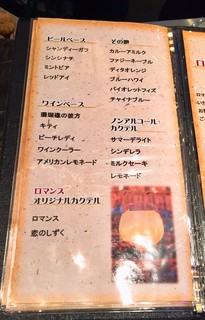 ビールベース
シャンディーガフ
シンシナチ
ミントビア
レッドアイ
ワインベース
珊瑚礁の彼方
キティ
ピーチレディ
ワインクーラー
アメリカンレモネード
ロマンス
オリジナルカクテル
ロマンス
恋のしずく
その他
カルーアミルク
ファジーネーブル
ディタオレンジ
ブルーハワイ
バイオレットフィズ
チャイナブルー
ノンアルコール・
カクテル
サマーデライト
シンデレラ
ミルクセーキ
レモネード